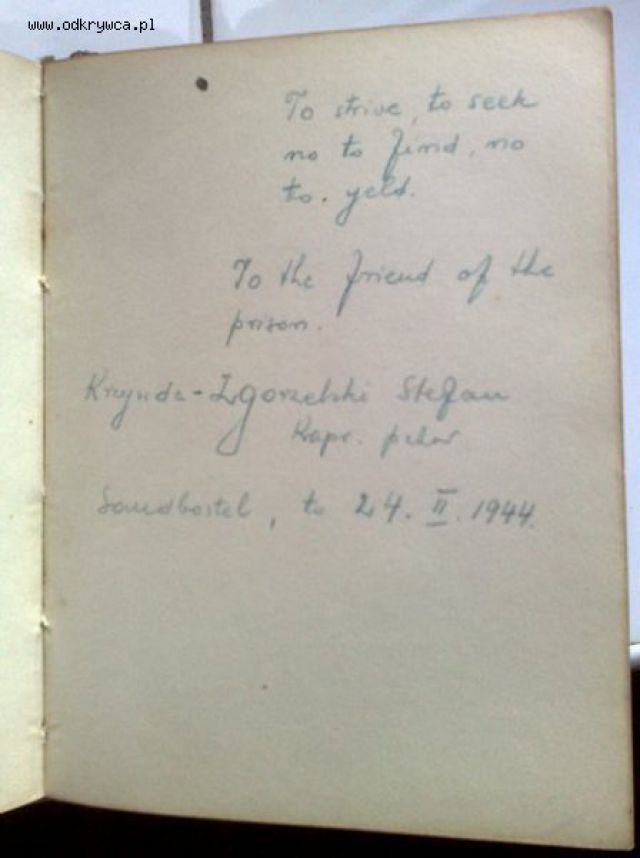 www.odkrywca.pl
To strive, to seek
no to find, no
to. yeld.
To the friend of the
prison.
Zgorzelski Stefan
Kapr.
Sandbostel, to 24. II. 1944.